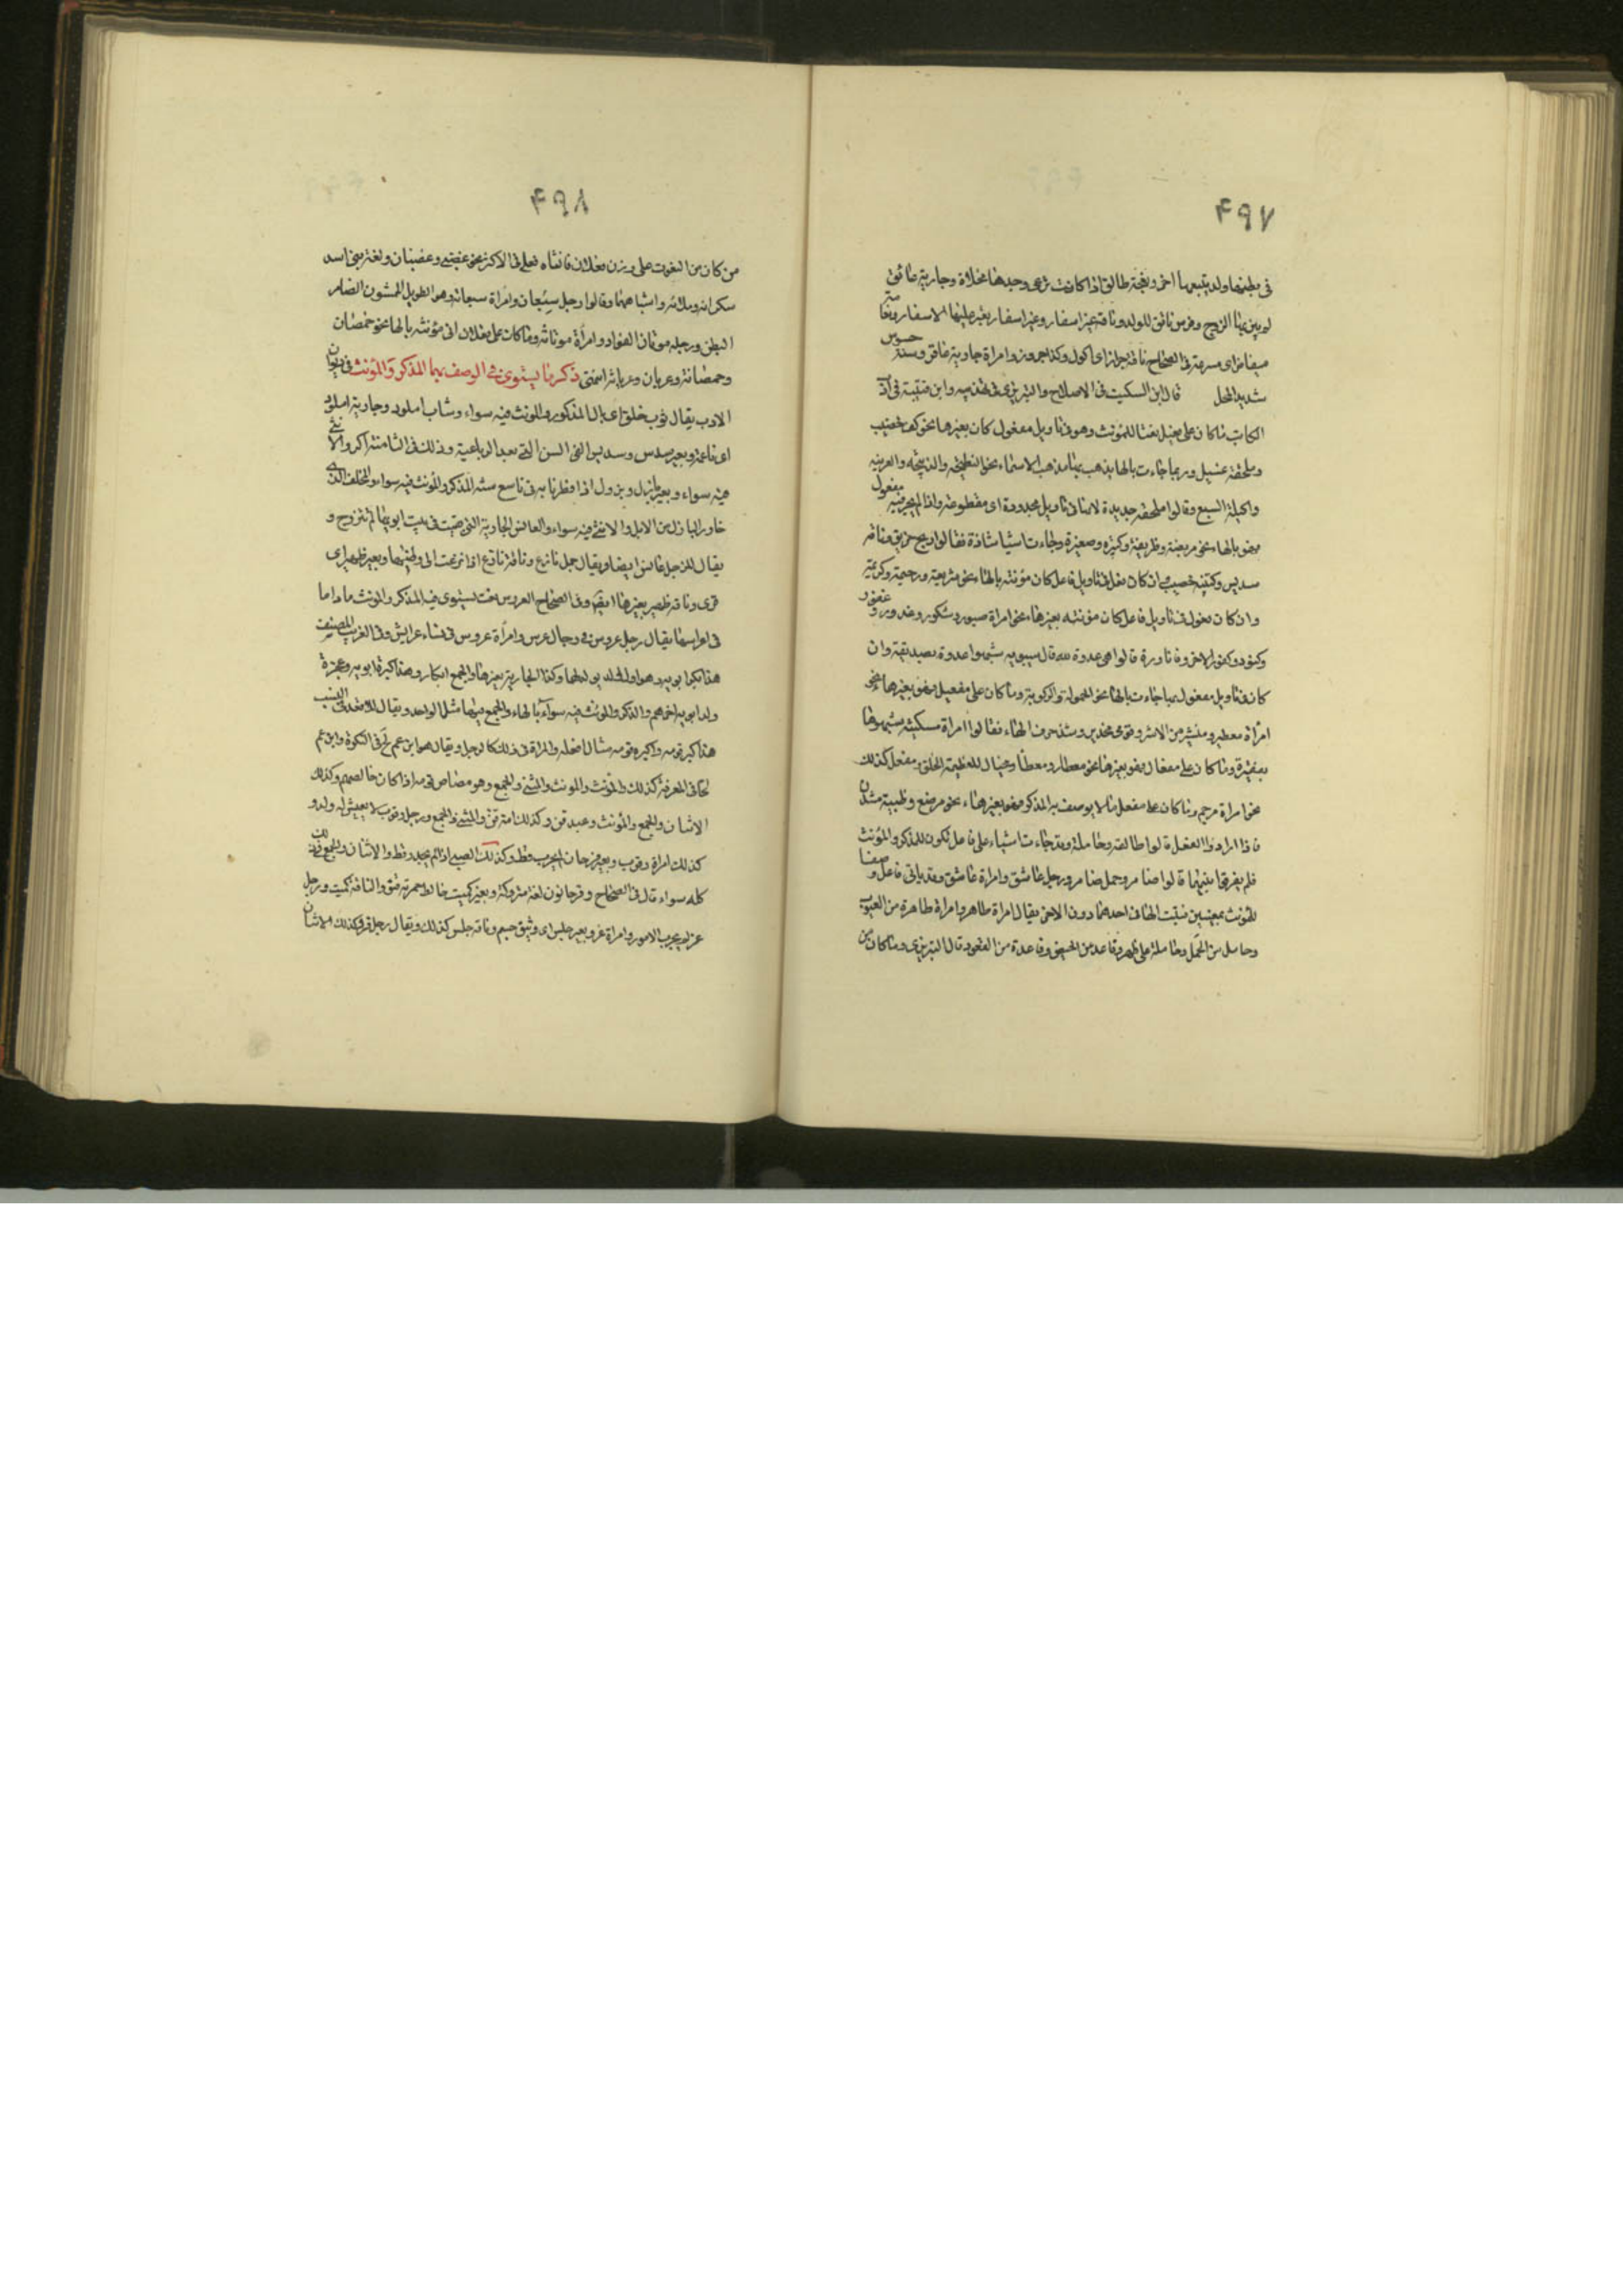 ٤٩٧
في بطنها ولد يتبعها اخر ونعجة طالق اذا كانت ترعى وحدها مخلاة وجارية عاتق
شديد المحل قال ابن السكيت في الاصلاح والتبريزي في تهذيبه وابن قتيبة في ادب
الكاتب ما كان على فعيل نعتا للمؤنث وهو في تاويل مفعول كان بغيرها نحو كف خضيب
وملحفة غسيل وربما جاءت بالها يذهب بها مذهب الاسماء نحو النطيحة والذبيحة والفريسة
واكيلة السبع وقالوا ملحفة جديدة لانها في تاويل مجدودة اى مقطوعة واذا لم يجز فيه مفعول
فهو بالهاء نحو مريضة وظريفة وكبيرة وصغيرة وجاءت اشيا شاذة فقالوا ريح خريق وناقة
سديس وكتيبة خصيف وان كان فعيل في تاويل فاعل كان مؤنثه بالهاء نحو شريفة ورحيمة وكريمة
وان كان فعول في تاويل فاعل كان مؤنثه بغيرهاء نحو امراة صبور وشكور وغدور وغفور
وكنود وكفور الا حرفا نادرة قالوا هي عدوة لله قال سيبويه شبهوا عدوة بصديقة وان
كان في تاويل مفعول بها جاءت بالها نحو الحمولة والركوبة وما كان على مفعيل فهو بغيرهاء نحو
امرأة معطير ومئشير من الاشر وفرس محضير وشذ حرف الهاء فقالوا امراة مسكينة شبهوها
بفقيرة وما كان على مفعال فهو بغيرها نحو معطار ومعطا ومجبال للعظيمة الخلق ومفعل كذلك
نحو امراة مرجم وما كان على مفعل مما لا يوصف به المذكر فهو بغيرهاء نحو مرضع وظبية مشدن
فاذا ارادوا الفعل قالوا طالقة وحاملة وقد جاءت اشياء على فاعل تكون للمذكر والمؤنث
فلم يفرقوا بينهما قالوا ضامر وجمل ضامر ورجل عاشق وامراة عاشق وقد ياتي فاعل وصفا
للمؤنث بمعنيين فثبت الها في احدهما دون الاخر يقال امراة طاهر وامراة طاهرة من العيوب
وحامل من الحمل وحاملة على ظهر وقاعد من الحيض وقاعدة من القعود قال التبريزي وما كان من
٤٩٨
من كان من النعوت على وزن فعلان فانثاه فعلى في الاكثر نحو غضبى وغضبان ولغة بني اسد
سكرانة وملانة واشباههما وقالوا رجل سيفان وامراة سيفانة وهو الطويل الممشوق الضامر
البطن ورجل موتان الفؤاد وامرأة موتانة وما كان على فعلان اتى مؤنثه بالهاء نحو خمصان
وخمصانة وعريان وعريانة انتهى ذكر ما يستوي في الوصف به المذكر والمؤنث في ديوان
الادب يقال ثوب خلق اى بال المذكر والمؤنث فيه سواء وشاب املود وجارية املود
اى ناعمة وبعير سدس وسديس القى السن التي بعد الرباعية وذلك في الثامنة الذكر والانثى
فيه سواء وبعير بازل وبزول اذا فطر نابه في تاسع سنة المذكر والمؤنث فيه سواء والمخلف الذي
جاوز البازل من الابل والانثى فيه سواء والعانس الجارية التي بقيت في بيت ابويها لم تتزوج و
يقال للرجل عانس ايضا ويقال جمل نازع وناقة نازع اذا نزعت الى وطنها وبعير ظهير اى
قوى وناقة ظهير بغيرها ايضا وفي الصحاح العروس نعت يستوي فيه المذكر والمؤنث ما داما
في اعراسهما يقال رجل عروس في رجال عرس وامرأة عروس في نساء عرايس وفي الغريب المصنف
هذا بكر ابويه وهو اول ولد يولد لهما وكذا الجارية بغيرها والجمع ابكار وهذا كبرة ابويه وعجزة
ولد ابويه اخرهم والذكر والمؤنث فيه سواء بالهاء والجمع فيهما مثل الواحد ويقال للاقعد في النسب
هذا كبر قومه واكبرة قومه مثال افعلة والمراة في ذلك كالرجل ويقال هو ابن عم لح في النكرة وابن عم
لحا في المعرفة كذلك المؤنث والمثنى والجمع وهو مصاص قومه اذا كان خالصهم وكذلك
الاثنان والجمع والمؤنث وعبد قن وكذلك امة قن والمثنى والجمع ورجل رقوب لا يعيش له ولد و
كذلك امراة رقوب وبعير قرحان لم يجرب قط وكذلك الصبي اذا لم يجدر قط والاثنان والجمع في ذلك
كله سواء قال في الصحاح وقرحانون لغة متروكة وبعير كميت خالط حمرته قنو والناقة كميت ورجل
غر لم يجرب الامور وامراة غر وبعير جلس اى وثيق جسيم وناقة جلس كذلك ويقال رجل فر وكذلك الاثنان